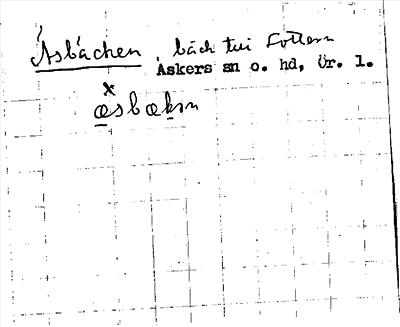 Åsbäcken, bäck till Lottern
Askers sn o. hd, Ör. l.
x
æsbækın